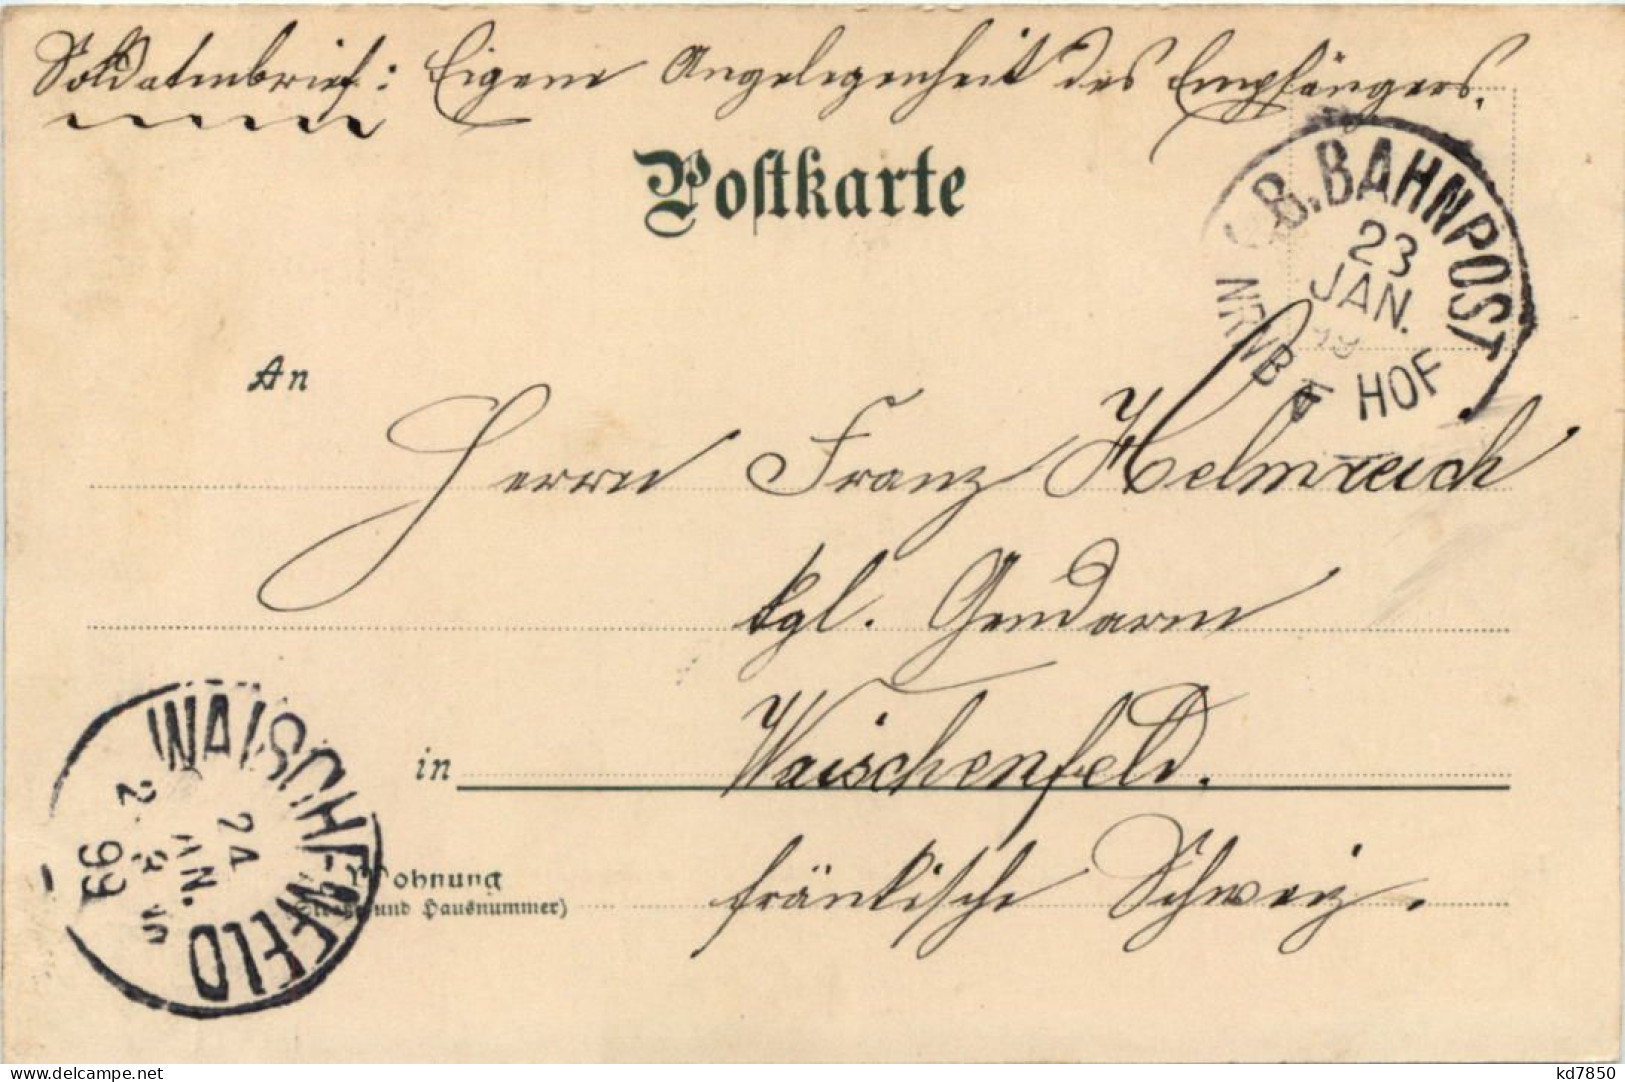 Soldatenbrief: Eigene Angelegenheit des Empfängers.
Postkarte
K.B.BAHNPOST
23
JAN.
99
NRNB HOF
An
Herrn Franz Helmreich
kgl. Gendarm
in Waischenfeld.
fränkische Schweiz.
Wohnung
(Straße und Hausnummer)
WAISCHENFELD
24
JAN.
99
kd7850